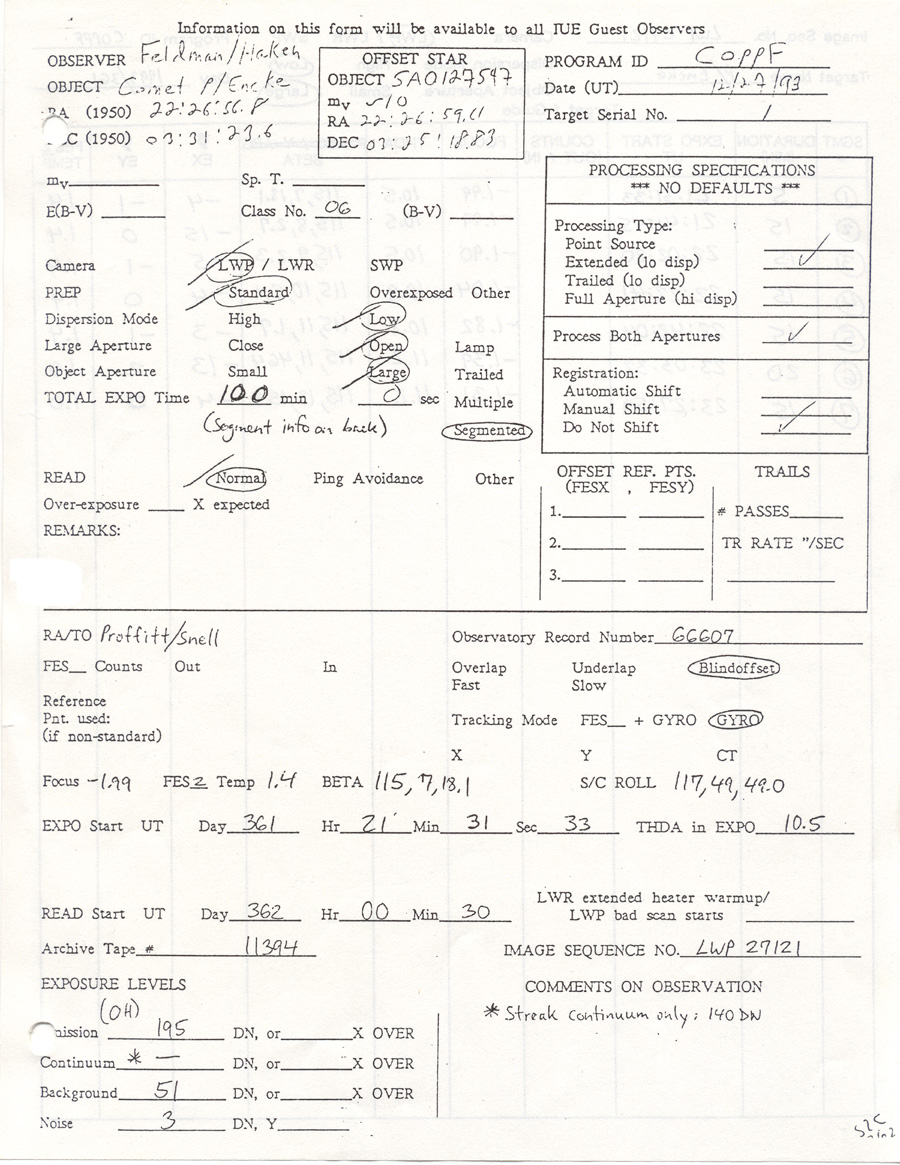 Information on this form will be available to all IUE Guest Observers
OBSERVER Feldman/Haken
OBJECT Comet P/Encke
RA (1950) 22:26:56.8
C (1950) 03:31:23.6
OFFSET STAR
OBJECT SAO127547
mv ~10
RA 22:26:59.11
DEC 03:25:18.83
PROGRAM ID COPPF
Date (UT) 12/27/93
Target Serial No. 1
mv Sp. T.
E(B-V) Class No. 06 (B-V)
PROCESSING SPECIFICATIONS
*** NO DEFAULTS ***
Processing Type:
Point Source
Extended (lo disp) ✓
Trailed (lo disp)
Full Aperture (hi disp)
Process Both Apertures ✓
Registration:
Automatic Shift
Manual Shift
Do Not Shift ✓
Camera LWP / LWR SWP
PREP Standard Overexposed Other
Dispersion Mode High Low
Large Aperture Close Open Lamp
Object Aperture Small Large Trailed
TOTAL EXPO Time 100 min 0 sec Multiple
(Segment info on back) Segmented
READ Normal Ping Avoidance Other
Over-exposure X expected
REMARKS:
OFFSET REF. PTS. TRAILS
(FESX , FESY)
1. # PASSES
2. TR RATE "/SEC
3.
RA/TO Proffitt/Snell Observatory Record Number 66607
FES Counts Out In Overlap Underlap Blindoffset
Fast Slow
Reference
Pnt. used:
(if non-standard)
Tracking Mode FES + GYRO GYRO
X Y CT
Focus -1.99 FES 2 Temp 1.4 BETA 115, 7, 18.1 S/C ROLL 117, 49, 49.0
EXPO Start UT Day 361 Hr 21 Min 31 Sec 33 THDA in EXPO 10.5
READ Start UT Day 362 Hr 00 Min 30 LWR extended heater warmup/
LWP bad scan starts
Archive Tape # 11394 IMAGE SEQUENCE NO. LWP 27121
EXPOSURE LEVELS COMMENTS ON OBSERVATION
(OH) * Streak continuum only: 140 DN
mission 195 DN, or X OVER
Continuum * — DN, or X OVER
Background 51 DN, or X OVER
Noise 3 DN, Y